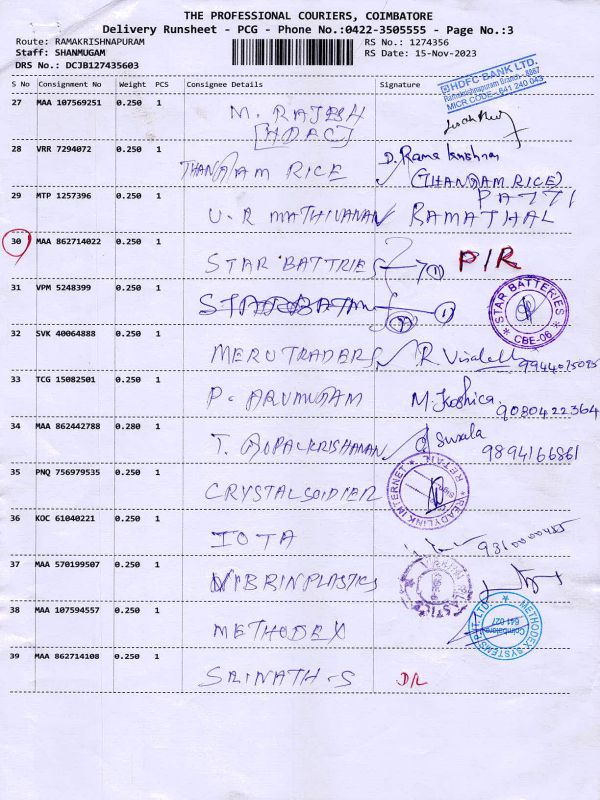 THE PROFESSIONAL COURIERS, COIMBATORE
Delivery Runsheet - PCG - Phone No.:0422-3505555 - Page No.:3
Route: RAMAKRISHNAPURAM RS No.: 1274356
Staff: SHANMUGAM RS Date: 15-Nov-2023
DRS No.: DCJB127435603
S No Consignment No Weight PCS Consignee Details Signature
HDFC BANK LTD.
MICR CODE - 641 240 043
27 MAA 107569251 0.250 1 M. RAJESH
[HDFC]
28 VRR 7294072 0.250 1 THANGAM RICE D. Rama krishnan
(THANGAM RICE)
29 MTP 1257396 0.250 1 U. R MATHIVANAN PATTI
RAMATHAL
30 MAA 862714022 0.250 1 STAR BATTRIES (1) P/R
31 VPM 5248399 0.250 1 (1)
STAR BATTERIES * CBE-06 *
32 SVK 40064888 0.250 1 MERU TRADERS
33 TCG 15082501 0.250 1 P. ARUMUGAM M. Koshica
9080422364
34 MAA 862442788 0.280 1 T. GOPALKRISHANAN Susala
9894166861
35 PNQ 756979535 0.250 1 CRYSTAL SOLDIER
READYLINK INTERNET * RETAIL
36 KOC 61040221 0.250 1 IOTA
37 MAA 570199507 0.250 1 VIBRINPLASTICS
38 MAA 107594557 0.250 1 METHODEX
METHODEX SYSTEMS PVT LTD. * Coimbatore 641 027
39 MAA 862714108 0.250 1 SRINATH-S D/L